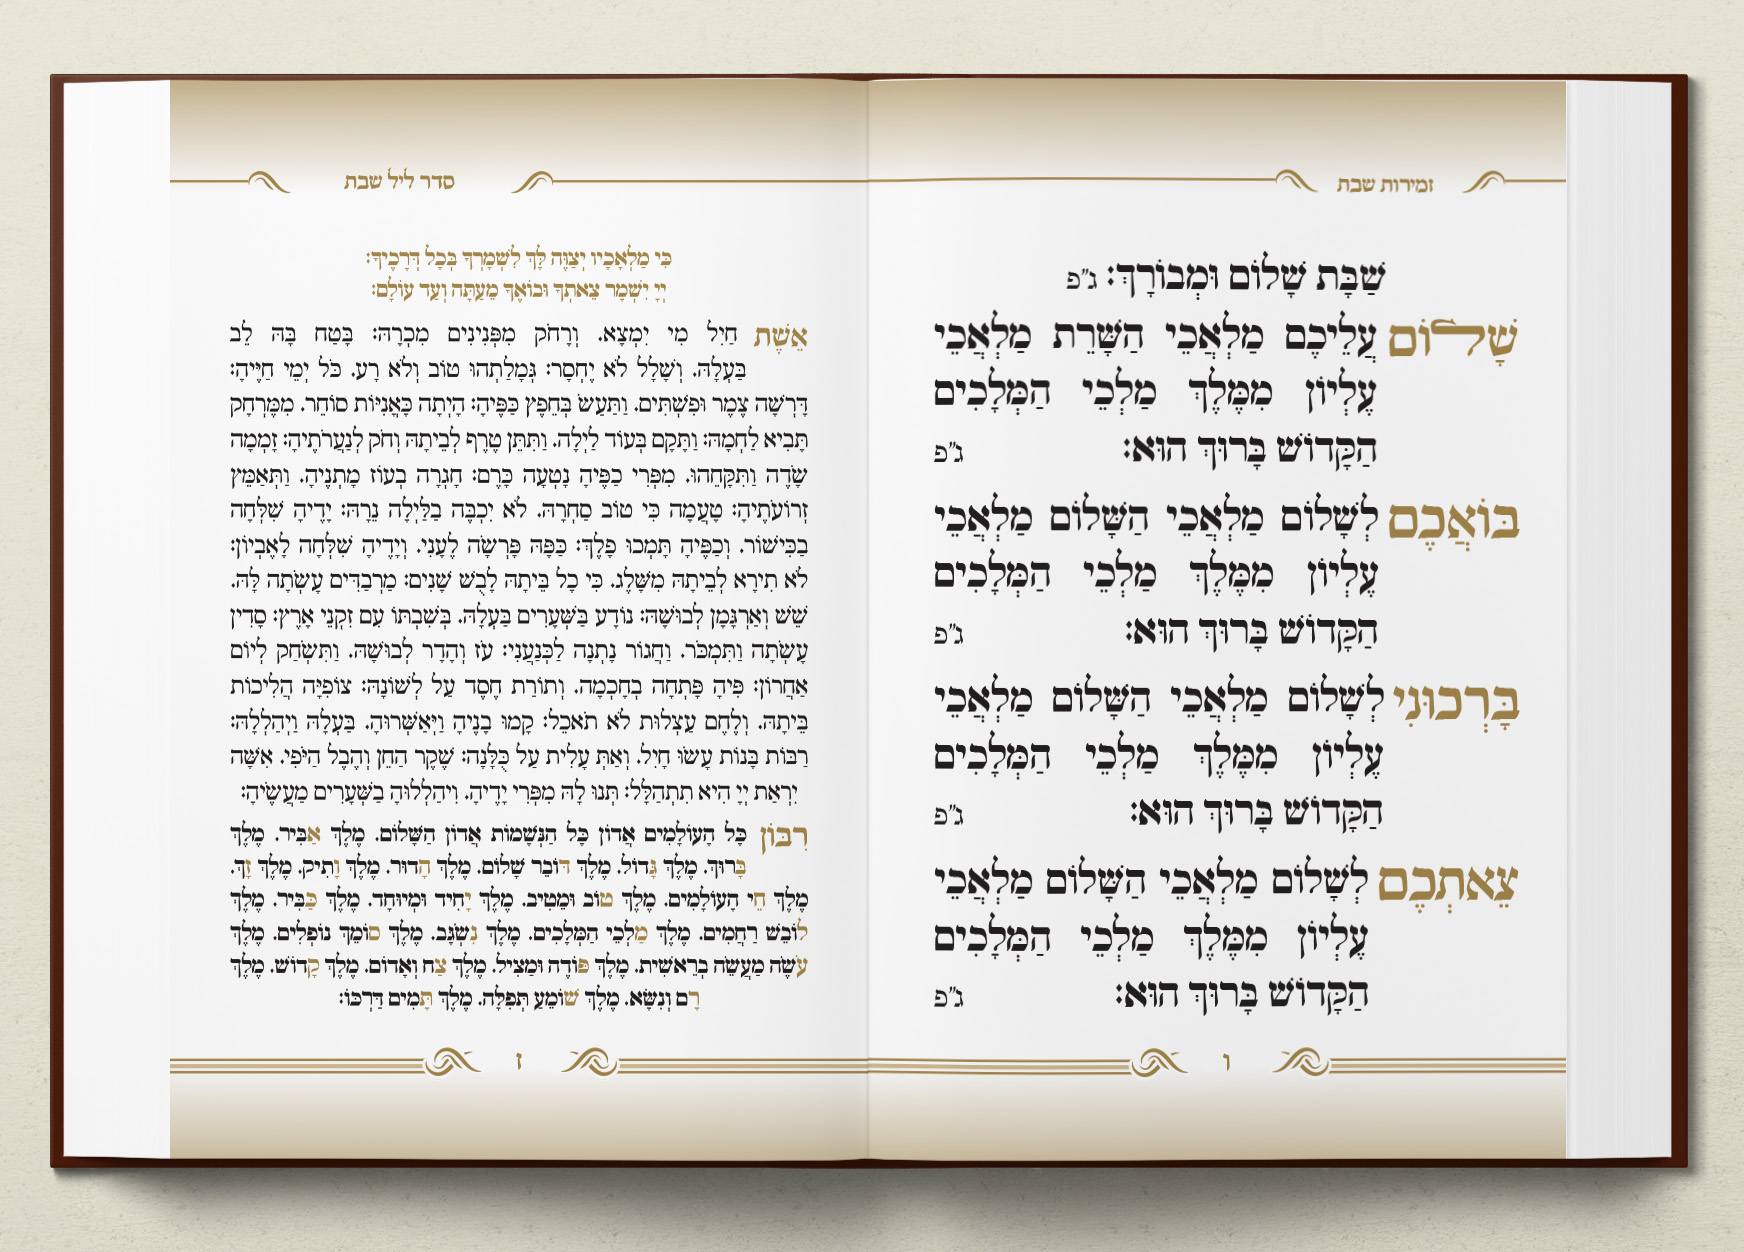 זמירות שבת
שַׁבָּת שָׁלוֹם וּמְבוֹרָךְ: ג"פ
שָׁלוֹם עֲלֵיכֶם מַלְאֲכֵי הַשָּׁרֵת מַלְאֲכֵי
עֶלְיוֹן מִמֶּלֶךְ מַלְכֵי הַמְּלָכִים
הַקָּדוֹשׁ בָּרוּךְ הוּא: ג"פ
בּוֹאֲכֶם לְשָׁלוֹם מַלְאֲכֵי הַשָּׁלוֹם מַלְאֲכֵי
עֶלְיוֹן מִמֶּלֶךְ מַלְכֵי הַמְּלָכִים
הַקָּדוֹשׁ בָּרוּךְ הוּא: ג"פ
בָּרְכוּנִי לְשָׁלוֹם מַלְאֲכֵי הַשָּׁלוֹם מַלְאֲכֵי
עֶלְיוֹן מִמֶּלֶךְ מַלְכֵי הַמְּלָכִים
הַקָּדוֹשׁ בָּרוּךְ הוּא: ג"פ
צֵאתְכֶם לְשָׁלוֹם מַלְאֲכֵי הַשָּׁלוֹם מַלְאֲכֵי
עֶלְיוֹן מִמֶּלֶךְ מַלְכֵי הַמְּלָכִים
הַקָּדוֹשׁ בָּרוּךְ הוּא: ג"פ
ו
סדר ליל שבת
כִּי מַלְאָכָיו יְצַוֶּה לָּךְ לִשְׁמָרְךָ בְּכָל דְּרָכֶיךָ:
יְיָ יִשְׁמָר צֵאתְךָ וּבוֹאֶךָ מֵעַתָּה וְעַד עוֹלָם:
אֵשֶׁת חַיִל מִי יִמְצָא. וְרָחֹק מִפְּנִינִים מִכְרָהּ: בָּטַח בָּהּ לֵב
בַּעְלָהּ. וְשָׁלָל לֹא יֶחְסָר: גְּמָלַתְהוּ טוֹב וְלֹא רָע. כֹּל יְמֵי חַיֶּיהָ:
דָּרְשָׁה צֶמֶר וּפִשְׁתִּים. וַתַּעַשׂ בְּחֵפֶץ כַּפֶּיהָ: הָיְתָה כָּאֳנִיּוֹת סוֹחֵר. מִמֶּרְחָק
תָּבִיא לַחְמָהּ: וַתָּקָם בְּעוֹד לַיְלָה. וַתִּתֵּן טֶרֶף לְבֵיתָהּ וְחֹק לְנַעֲרֹתֶיהָ: זָמְמָה
שָׂדֶה וַתִּקָּחֵהוּ. מִפְּרִי כַפֶּיהָ נָטְעָה כָּרֶם: חָגְרָה בְעוֹז מָתְנֶיהָ. וַתְּאַמֵּץ
זְרוֹעֹתֶיהָ: טָעֲמָה כִּי טוֹב סַחְרָהּ. לֹא יִכְבֶּה בַלַּיְלָה נֵרָהּ: יָדֶיהָ שִׁלְּחָה
בַכִּישׁוֹר. וְכַפֶּיהָ תָּמְכוּ פָלֶךְ: כַּפָּהּ פָּרְשָׂה לֶעָנִי. וְיָדֶיהָ שִׁלְּחָה לָאֶבְיוֹן:
לֹא תִירָא לְבֵיתָהּ מִשָּׁלֶג. כִּי כָל בֵּיתָהּ לָבֻשׁ שָׁנִים: מַרְבַדִּים עָשְׂתָה לָּהּ.
שֵׁשׁ וְאַרְגָּמָן לְבוּשָׁהּ: נוֹדָע בַּשְּׁעָרִים בַּעְלָהּ. בְּשִׁבְתּוֹ עִם זִקְנֵי אָרֶץ: סָדִין
עָשְׂתָה וַתִּמְכֹּר. וַחֲגוֹר נָתְנָה לַכְּנַעֲנִי: עֹז וְהָדָר לְבוּשָׁהּ. וַתִּשְׂחַק לְיוֹם
אַחֲרוֹן: פִּיהָ פָּתְחָה בְחָכְמָה. וְתוֹרַת חֶסֶד עַל לְשׁוֹנָהּ: צוֹפִיָּה הֲלִיכוֹת
בֵּיתָהּ. וְלֶחֶם עַצְלוּת לֹא תֹאכֵל: קָמוּ בָנֶיהָ וַיְּאַשְּׁרוּהָ. בַּעְלָהּ וַיְהַלְלָהּ:
רַבּוֹת בָּנוֹת עָשׂוּ חָיִל. וְאַתְּ עָלִית עַל כֻּלָּנָה: שֶׁקֶר הַחֵן וְהֶבֶל הַיֹּפִי. אִשָּׁה
יִרְאַת יְיָ הִיא תִתְהַלָּל: תְּנוּ לָהּ מִפְּרִי יָדֶיהָ. וִיהַלְלוּהָ בַשְּׁעָרִים מַעֲשֶׂיהָ:
רִבּוֹן כָּל הָעוֹלָמִים אֲדוֹן כָּל הַנְּשָׁמוֹת אֲדוֹן הַשָּׁלוֹם. מֶלֶךְ אַבִּיר. מֶלֶךְ
בָּרוּךְ. מֶלֶךְ גָּדוֹל. מֶלֶךְ דּוֹבֵר שָׁלוֹם. מֶלֶךְ הָדוּר. מֶלֶךְ וָתִיק. מֶלֶךְ זַךְ.
מֶלֶךְ חֵי הָעוֹלָמִים. מֶלֶךְ טוֹב וּמֵטִיב. מֶלֶךְ יָחִיד וּמְיוּחָד. מֶלֶךְ כַּבִּיר. מֶלֶךְ
לוֹבֵשׁ רַחֲמִים. מֶלֶךְ מַלְכֵי הַמְּלָכִים. מֶלֶךְ נִשְׂגָּב. מֶלֶךְ סוֹמֵךְ נוֹפְלִים. מֶלֶךְ
עֹשֶׂה מַעֲשֵׂה בְרֵאשִׁית. מֶלֶךְ פּוֹדֶה וּמַצִּיל. מֶלֶךְ צַח וְאָדוֹם. מֶלֶךְ קָדוֹשׁ. מֶלֶךְ
רָם וְנִשָּׂא. מֶלֶךְ שׁוֹמֵעַ תְּפִלָּה. מֶלֶךְ תָּמִים דַּרְכּוֹ:
ז